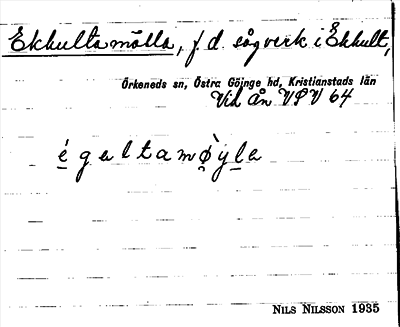 Ekhultamölla, f.d. sågverk i Ekhult,
Örkeneds sn, Östra Göinge hd, Kristianstads län
Vid ån VSV 64
é g a l t a m ø̀ y l a
NILS NILSSON 1935